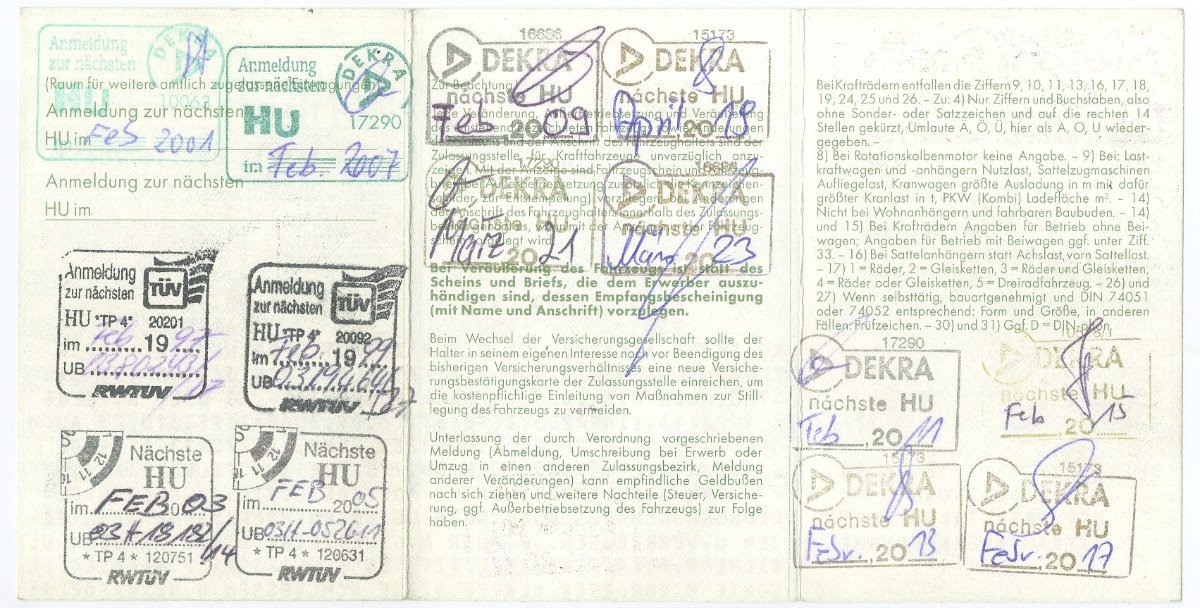 Anmeldung
zur nächsten
DEKRA
HU
10061
HU im Feb 2001
Anmeldung
zur nächsten
DEKRA
HU
17290
im Feb. 2007
(Raum für weitere amtlich zugelassene Eintragungen)
Anmeldung zur nächsten
Anmeldung zur nächsten
HU im
Anmeldung
zur nächsten
TÜV
HU *TP 4* 20201
im Feb. 1997
UB
RWTÜV
Anmeldung
zur nächsten
TÜV
HU *TP 4* 20092
im Feb. 1999
UB
RWTÜV
Nächste
HU
im FEB 2003
UB 03H-18182/14
* TP 4 * 120751
RWTÜV
Nächste
HU
im FEB 2005
UB 03H-052611
* TP 4 * 120631
RWTÜV
16686
DEKRA
nächste HU
Feb 2009
15173
DEKRA
nächste HU
April 2019
17290
DEKRA
nächste HU
März 2021
16686
DEKRA
nächste HU
März 2023
Zur Beachtung
Zulassungsstelle für Kraftfahrzeuge unverzüglich anzu-
Bei Veräußerung des Fahrzeugs ist statt des
Scheins und Briefs, die dem Erwerber auszu-
händigen sind, dessen Empfangsbescheinigung
(mit Name und Anschrift) vorzulegen.
Beim Wechsel der Versicherungsgesellschaft sollte der
Halter in seinem eigenen Interesse noch vor Beendigung des
bisherigen Versicherungsverhältnisses eine neue Versiche-
rungsbestätigungskarte der Zulassungsstelle einreichen, um
die kostenpflichtige Einleitung von Maßnahmen zur Still-
legung des Fahrzeugs zu vermeiden.
Unterlassung der durch Verordnung vorgeschriebenen
Meldung (Abmeldung, Umschreibung bei Erwerb oder
Umzug in einen anderen Zulassungsbezirk, Meldung
anderer Veränderungen) kann empfindliche Geldbußen
nach sich ziehen und weitere Nachteile (Steuer, Versiche-
rung, ggf. Außerbetriebsetzung des Fahrzeugs) zur Folge
haben.
Bei Krafträdern entfallen die Ziffern 9, 10, 11, 13, 16, 17, 18,
19, 24, 25 und 26. – Zu: 4) Nur Ziffern und Buchstaben, also
ohne Sonder- oder Satzzeichen und auf die rechten 14
Stellen gekürzt, Umlaute Ä, Ö, Ü, hier als A, O, U wieder-
gegeben. –
8) Bei Rotationskolbenmotor keine Angabe. – 9) Bei: Last-
kraftwagen und -anhängern Nutzlast, Sattelzugmaschinen
Aufliegelast, Kranwagen größte Ausladung in m mit dafür
größter Kranlast in t, PKW (Kombi) Ladefläche m². – 14)
Nicht bei Wohnanhängern und fahrbaren Baubuden. – 14)
und 15) Bei Krafträdern Angaben für Betrieb ohne Bei-
wagen; Angaben für Betrieb mit Beiwagen ggf. unter Ziff.
33. – 16) Bei Sattelanhängern statt Achslast, vorn Sattellast.
– 17) 1 = Räder, 2 = Gleisketten, 3 = Räder und Gleisketten,
4 = Räder oder Gleisketten, 5 = Dreiradfahrzeug. – 26) und
27) Wenn selbsttätig, bauartgenehmigt und DIN 74051
oder 74052 entsprechend: Form und Größe, in anderen
Fällen Prüfzeichen. – 30) und 31) Ggf. D = DIN-phon.
17290
DEKRA
nächste HU
Feb 2011
DEKRA
nächste HU
Feb 2015
15173
DEKRA
nächste HU
Febr. 2013
15173
DEKRA
nächste HU
Febr. 2017